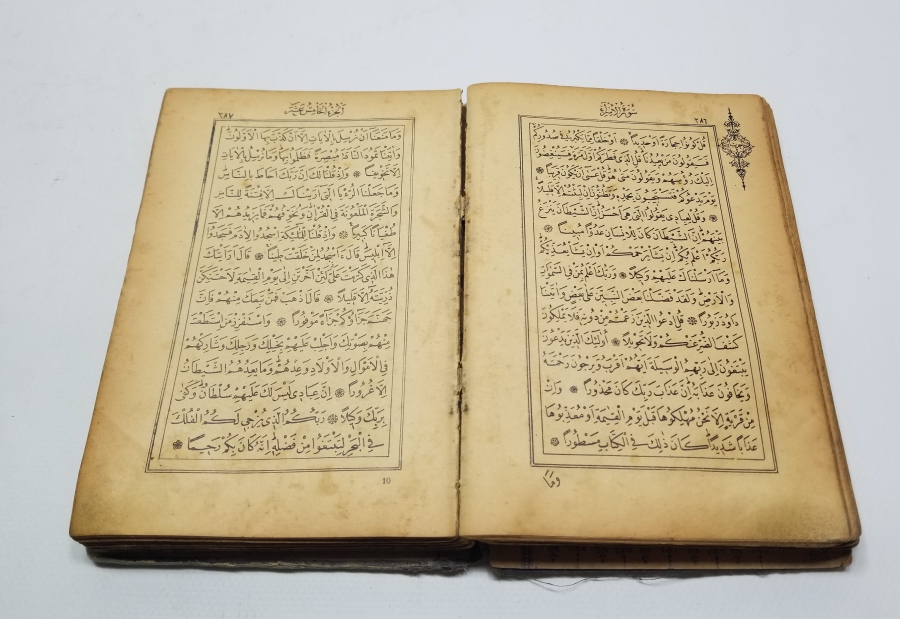 سُورَةُ الْاِسْرَاءِ ٢٨٦
قُلْ كُونُوا حِجَارَةً اَوْ حَدِيدًا ۞ اَوْ خَلْقًا مِمَّا يَكْبُرُ فِى صُدُورِكُمْ
فَسَيَقُولُونَ مَنْ يُعِيدُنَا قُلِ الَّذِى فَطَرَكُمْ اَوَّلَ مَرَّةٍ فَسَيُنْغِضُونَ
اِلَيْكَ رُؤُسَهُمْ وَيَقُولُونَ مَتٰى هُوَ قُلْ عَسٰى اَنْ يَكُونَ قَرِيبًا ۞
يَوْمَ يَدْعُوكُمْ فَتَسْتَجِيبُونَ بِحَمْدِهِ وَتَظُنُّونَ اِنْ لَبِثْتُمْ اِلَّا قَلِيلًا
۞ وَقُلْ لِعِبَادِى يَقُولُوا الَّتِى هِىَ اَحْسَنُ اِنَّ الشَّيْطَانَ يَنْزَغُ
بَيْنَهُمْ اِنَّ الشَّيْطَانَ كَانَ لِلْاِنْسَانِ عَدُوًّا مُبِينًا ۞
رَبُّكُمْ اَعْلَمُ بِكُمْ اِنْ يَشَأْ يَرْحَمْكُمْ اَوْ اِنْ يَشَأْ يُعَذِّبْكُمْ
وَمَا اَرْسَلْنَاكَ عَلَيْهِمْ وَكِيلًا ۞ وَرَبُّكَ اَعْلَمُ بِمَنْ فِى السَّمٰوَاتِ
وَالْاَرْضِ وَلَقَدْ فَضَّلْنَا بَعْضَ النَّبِيّٖنَ عَلٰى بَعْضٍ وَاٰتَيْنَا
دَاوُدَ زَبُورًا ۞ قُلِ ادْعُوا الَّذِينَ زَعَمْتُمْ مِنْ دُونِهِ فَلَا يَمْلِكُونَ
كَشْفَ الضُّرِّ عَنْكُمْ وَلَا تَحْوِيلًا ۞ اُولٰئِكَ الَّذِينَ يَدْعُونَ
يَبْتَغُونَ اِلٰى رَبِّهِمُ الْوَسِيلَةَ اَيُّهُمْ اَقْرَبُ وَيَرْجُونَ رَحْمَتَهُ
وَيَخَافُونَ عَذَابَهُ اِنَّ عَذَابَ رَبِّكَ كَانَ مَحْذُورًا ۞ وَاِنْ
مِنْ قَرْيَةٍ اِلَّا نَحْنُ مُهْلِكُوهَا قَبْلَ يَوْمِ الْقِيٰمَةِ اَوْ مُعَذِّبُوهَا
عَذَابًا شَدِيدًا كَانَ ذٰلِكَ فِى الْكِتَابِ مَسْطُورًا ۞
وَمَا
اَلْجُزْءُ الْخَامِسُ عَشَرَ ٢٨٧
وَمَا مَنَعَنَا اَنْ نُرْسِلَ بِالْاٰيَاتِ اِلَّا اَنْ كَذَّبَ بِهَا الْاَوَّلُونَ
وَاٰتَيْنَا ثَمُودَ النَّاقَةَ مُبْصِرَةً فَظَلَمُوا بِهَا وَمَا نُرْسِلُ بِالْاٰيَاتِ
اِلَّا تَخْوِيفًا ۞ وَاِذْ قُلْنَا لَكَ اِنَّ رَبَّكَ اَحَاطَ بِالنَّاسِ
وَمَا جَعَلْنَا الرُّؤْيَا الَّتِى اَرَيْنَاكَ اِلَّا فِتْنَةً لِلنَّاسِ
وَالشَّجَرَةَ الْمَلْعُونَةَ فِى الْقُرْاٰنِ وَنُخَوِّفُهُمْ فَمَا يَزِيدُهُمْ اِلَّا
طُغْيَانًا كَبِيرًا ۞ وَاِذْ قُلْنَا لِلْمَلٰئِكَةِ اسْجُدُوا لِاٰدَمَ فَسَجَدُوا
اِلَّا اِبْلِيسَ قَالَ ءَاَسْجُدُ لِمَنْ خَلَقْتَ طِينًا ۞ قَالَ اَرَاَيْتَكَ
هٰذَا الَّذِى كَرَّمْتَ عَلَىَّ لَئِنْ اَخَّرْتَنِ اِلٰى يَوْمِ الْقِيٰمَةِ لَاَحْتَنِكَنَّ
ذُرِّيَّتَهُ اِلَّا قَلِيلًا ۞ قَالَ اذْهَبْ فَمَنْ تَبِعَكَ مِنْهُمْ فَاِنَّ
جَهَنَّمَ جَزَاؤُكُمْ جَزَاءً مَوْفُورًا ۞ وَاسْتَفْزِزْ مَنِ اسْتَطَعْتَ
مِنْهُمْ بِصَوْتِكَ وَاَجْلِبْ عَلَيْهِمْ بِخَيْلِكَ وَرَجِلِكَ وَشَارِكْهُمْ
فِى الْاَمْوَالِ وَالْاَوْلَادِ وَعِدْهُمْ وَمَا يَعِدُهُمُ الشَّيْطَانُ
اِلَّا غُرُورًا ۞ اِنَّ عِبَادِى لَيْسَ لَكَ عَلَيْهِمْ سُلْطَانٌ وَكَفٰى
بِرَبِّكَ وَكِيلًا ۞ رَبُّكُمُ الَّذِى يُزْجِى لَكُمُ الْفُلْكَ
فِى الْبَحْرِ لِتَبْتَغُوا مِنْ فَضْلِهِ اِنَّهُ كَانَ بِكُمْ رَحِيمًا ۞
10